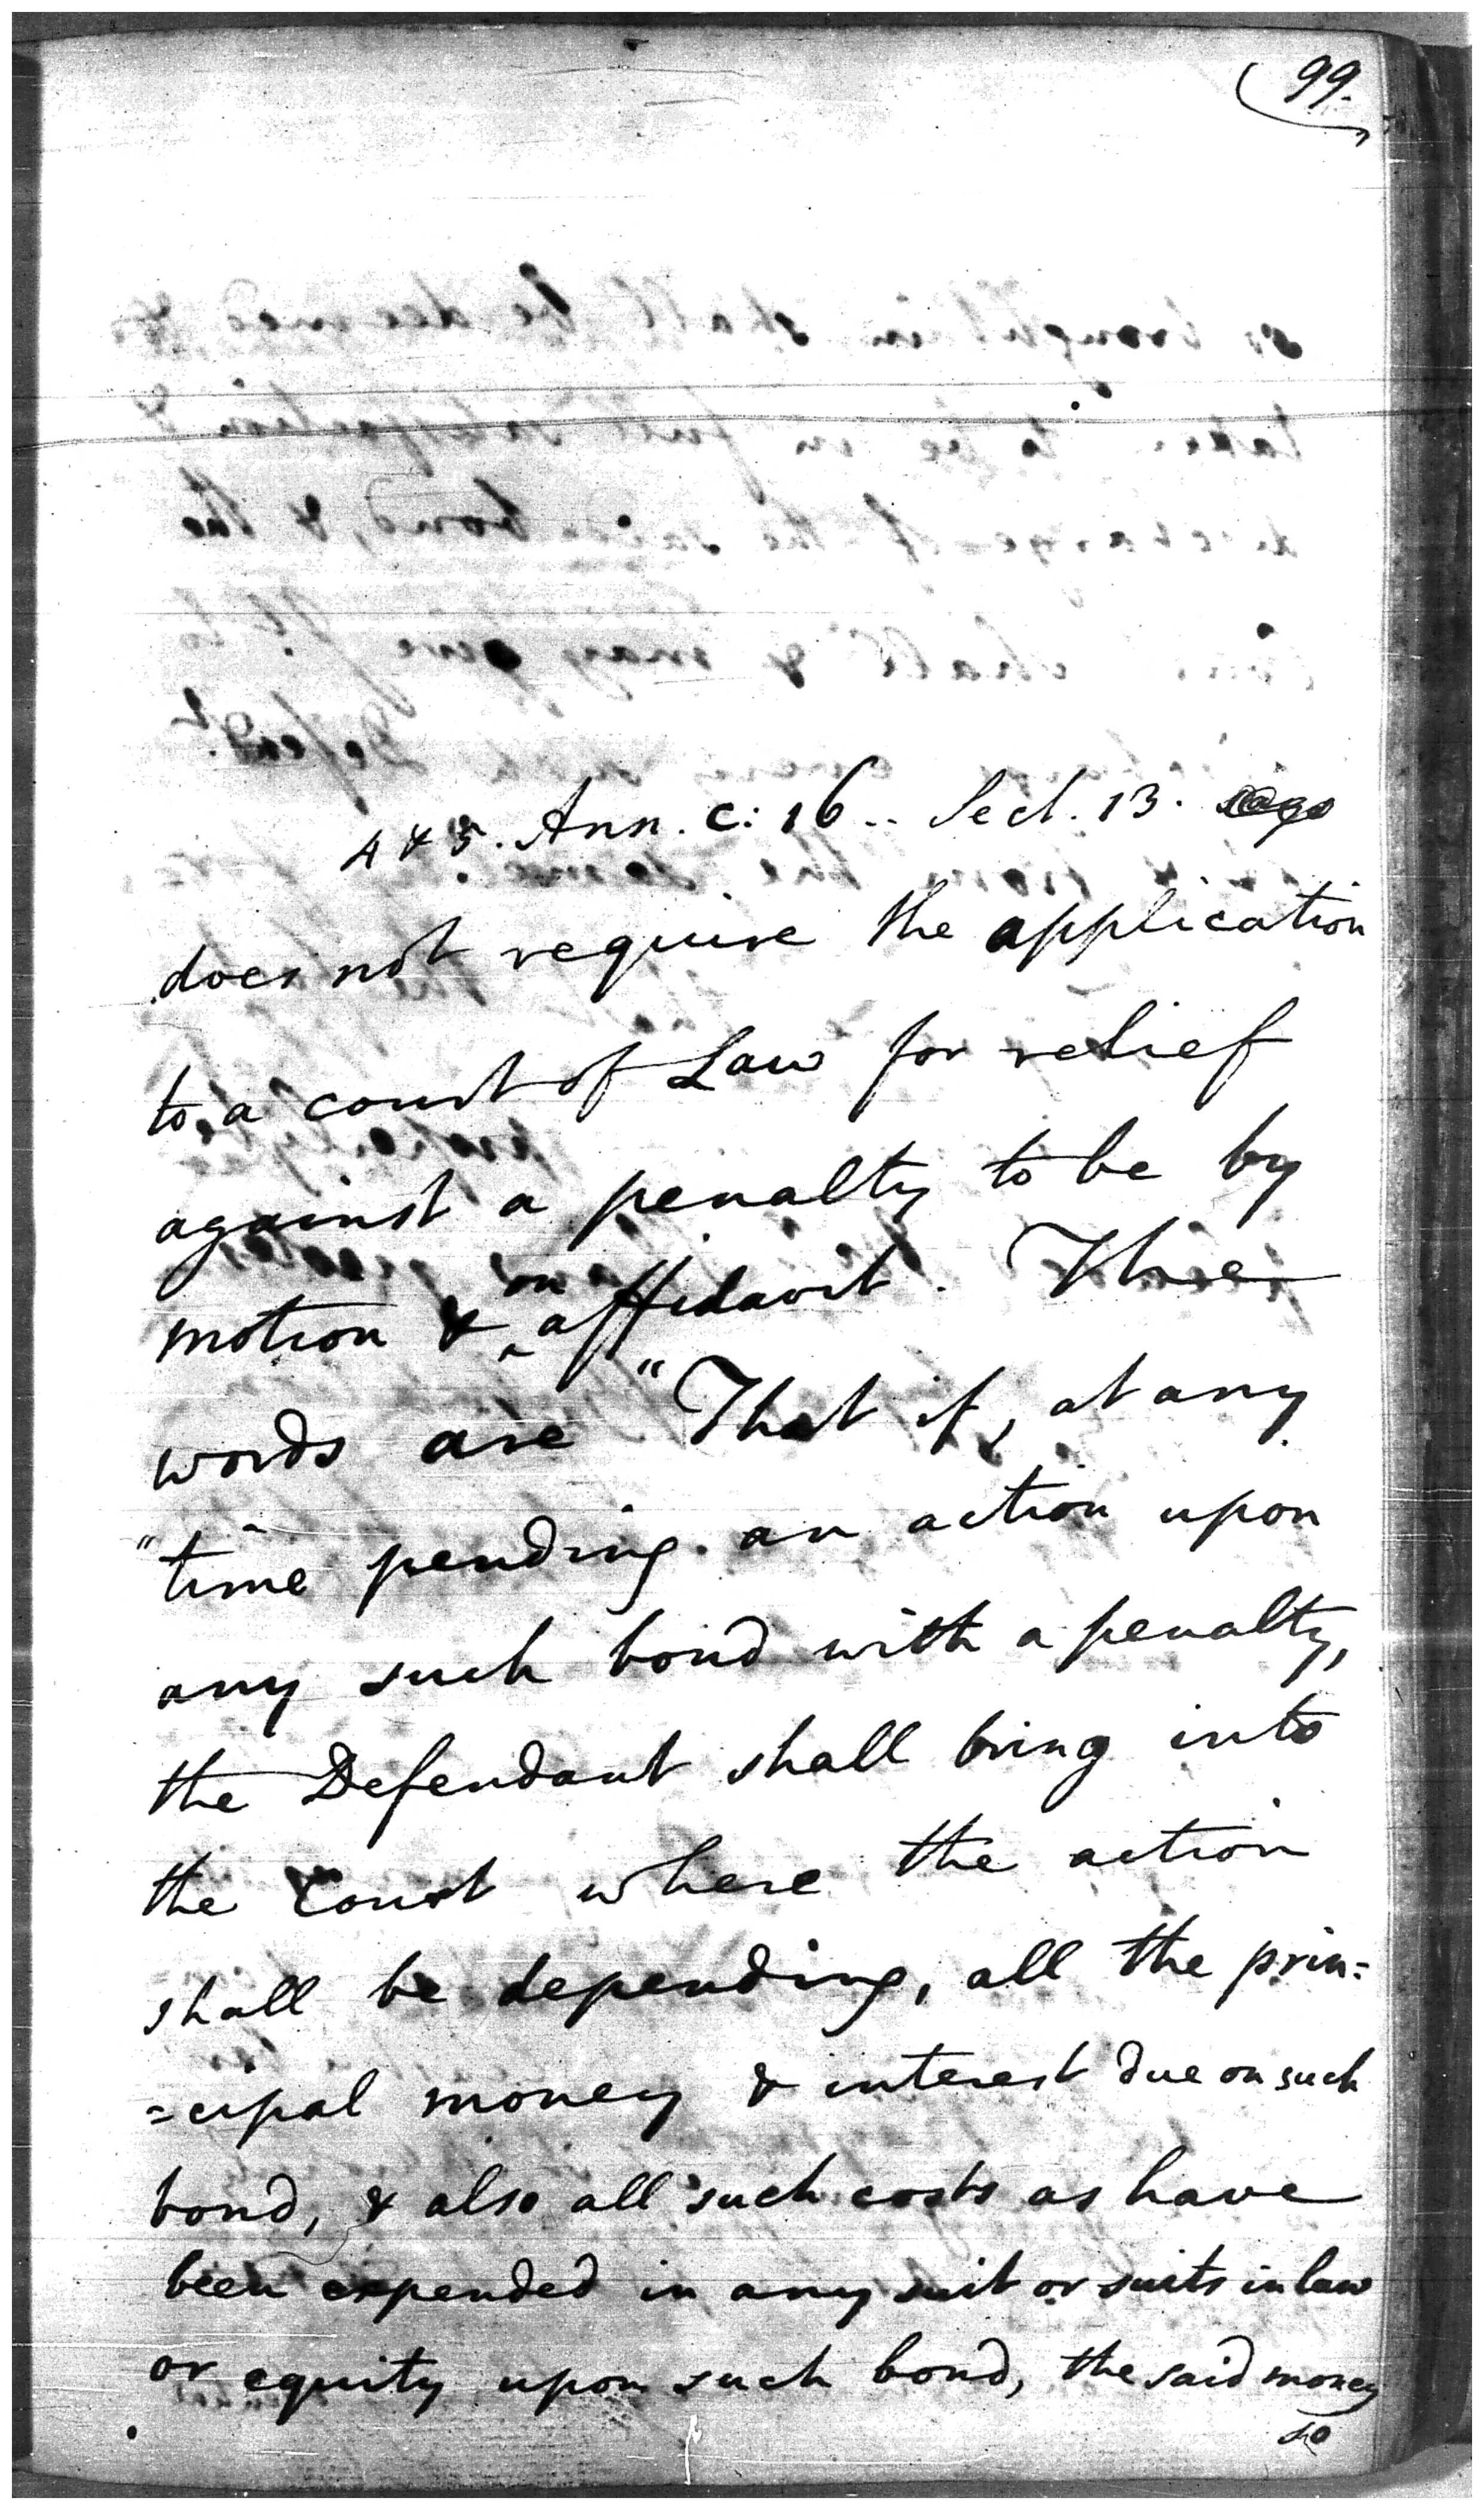 99.
4 & 5. Ann. c: 16.. Sect. 13.
does not require the application
to a court of Law for relief
against a penalty to be by
motion & on affidavit. The
words are "That if, at any
"time pending an action upon
any such bond with a penalty,
the Defendant shall bring into
the Court where the action
shall be depending, all the prin=
=cipal money & interest due on such
bond, & also all such costs as have
been expended in any suit or suits in law
or equity upon such bond, the said money
so